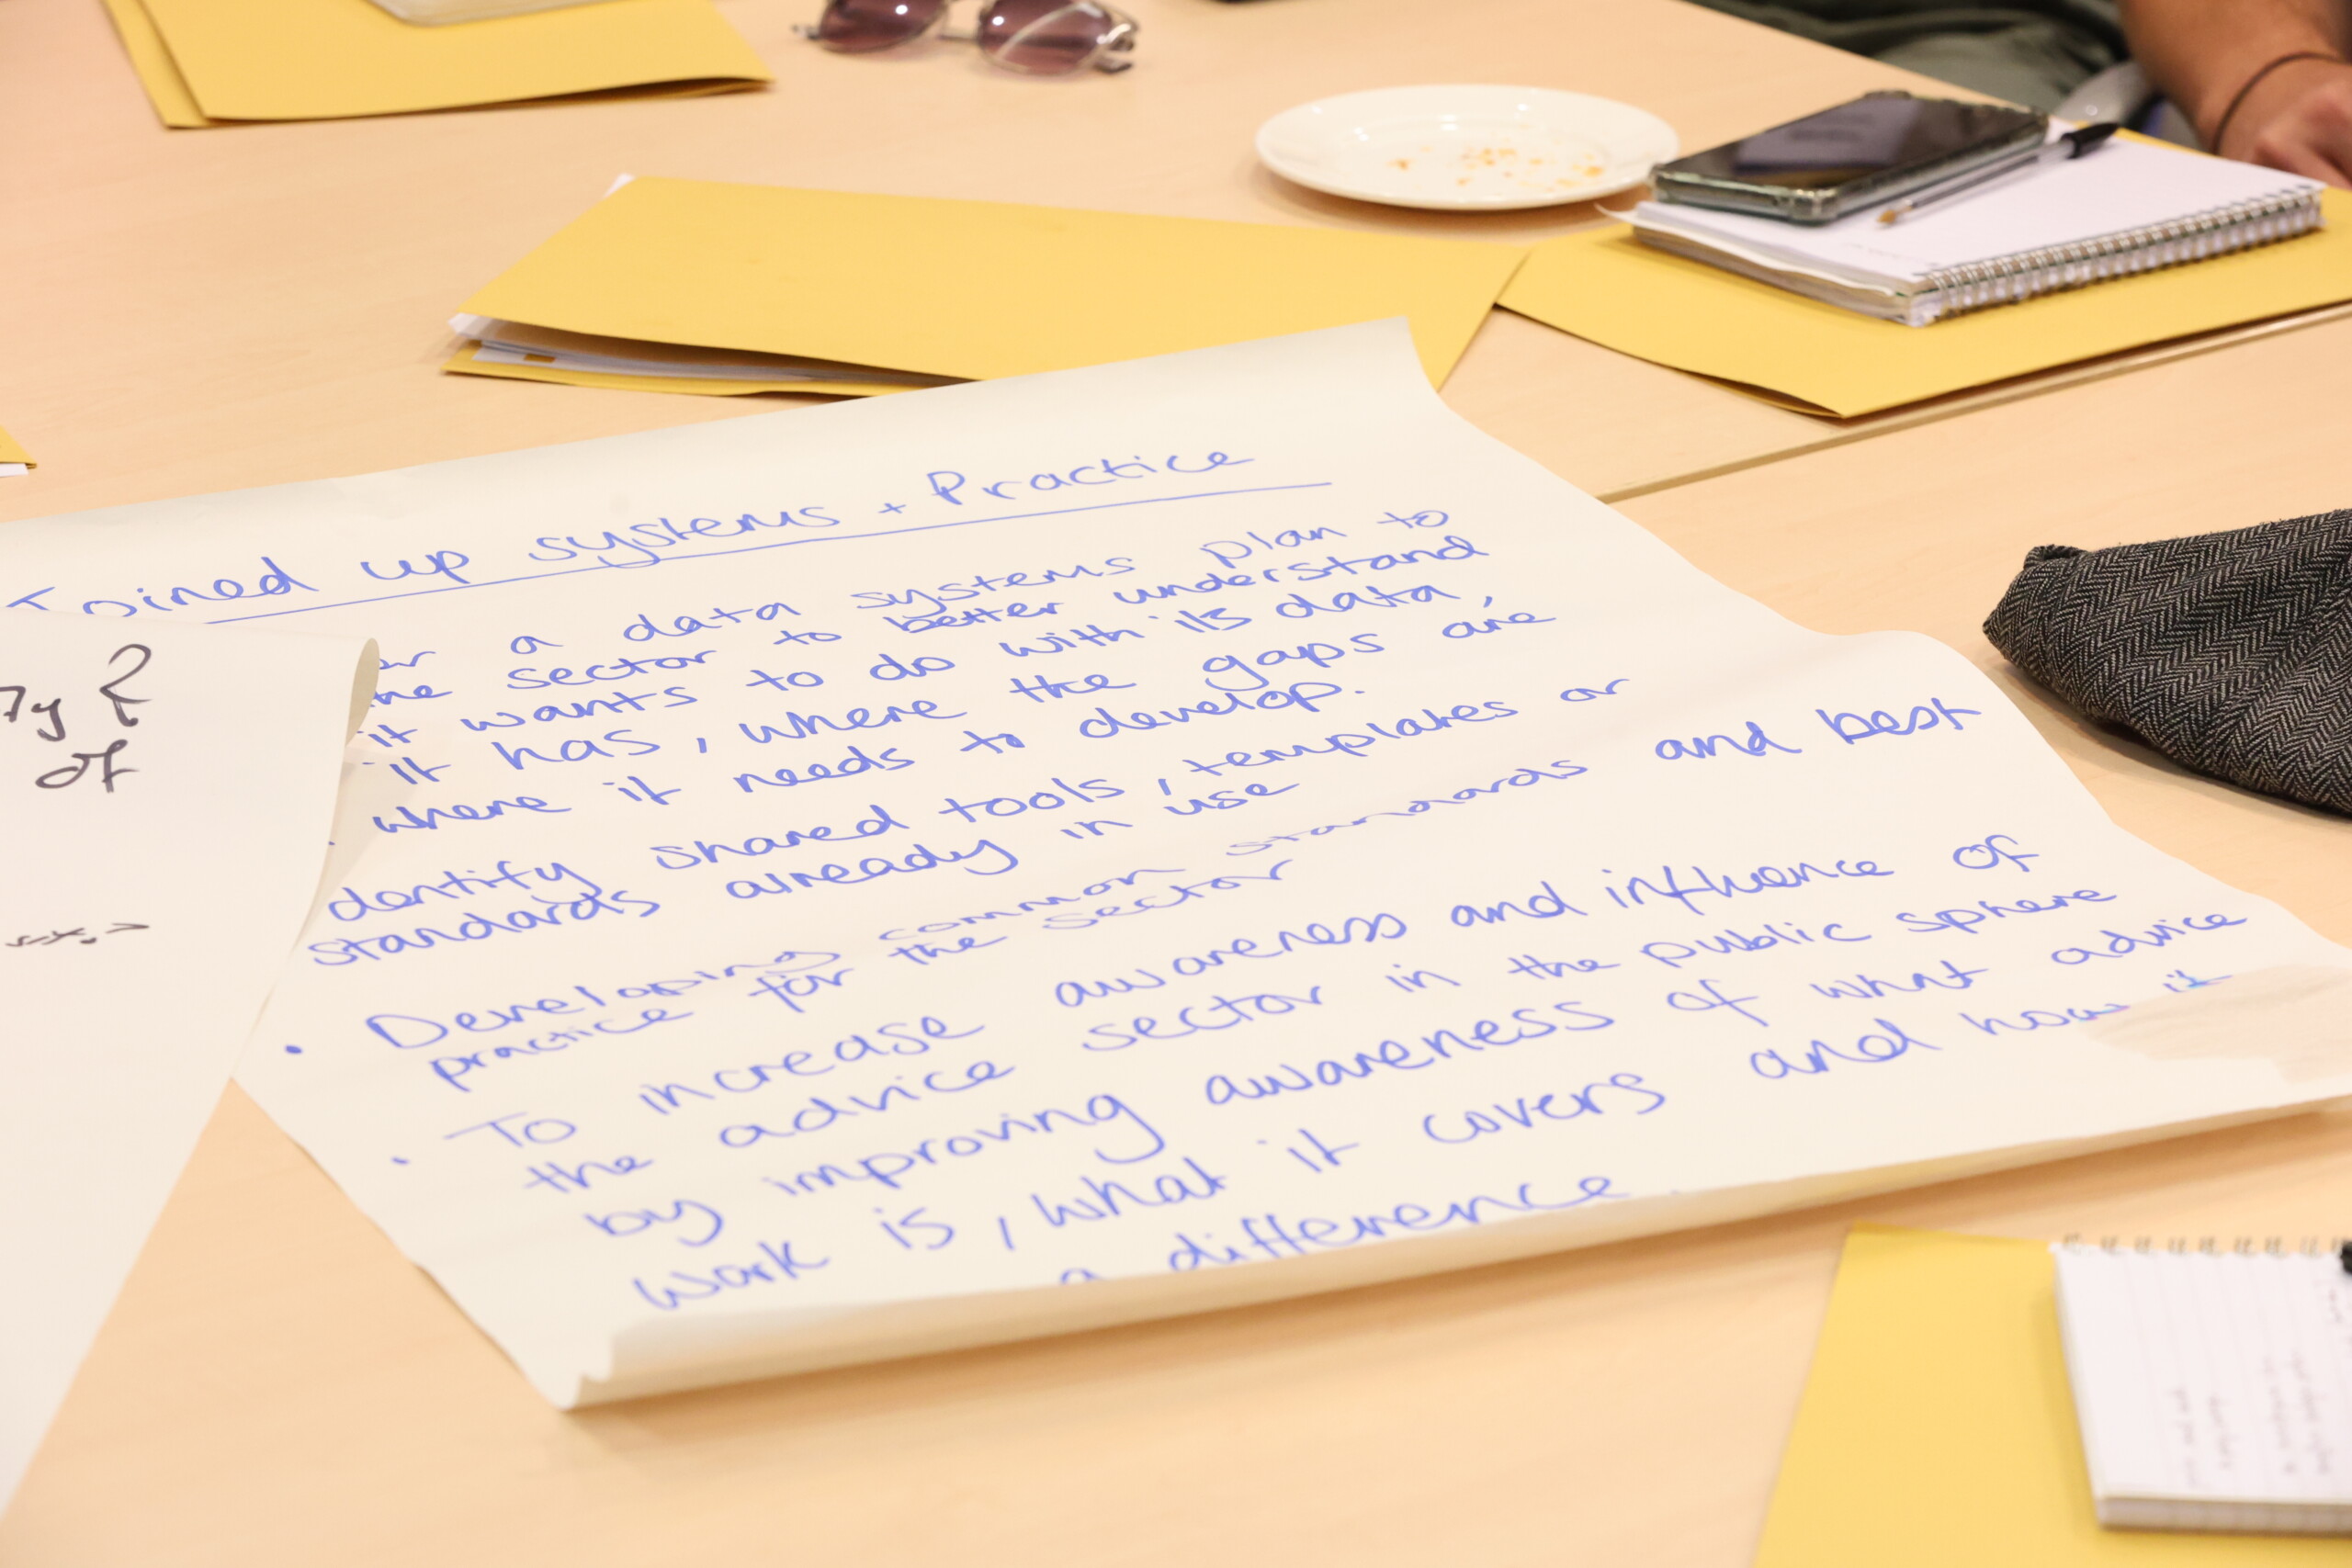 Joined up systems + Practice
a data systems plan to
sector to better understand
it wants to do with its data,
it has, where the gaps are
where it needs to develop.
identify shared tools, templates or
standards already in use
• Developing common standards and best
practice for the sector
• To increase awareness and influence of
the advice sector in the public sphere
by improving awareness of what advice
work is, what it covers and how it
a difference.
of